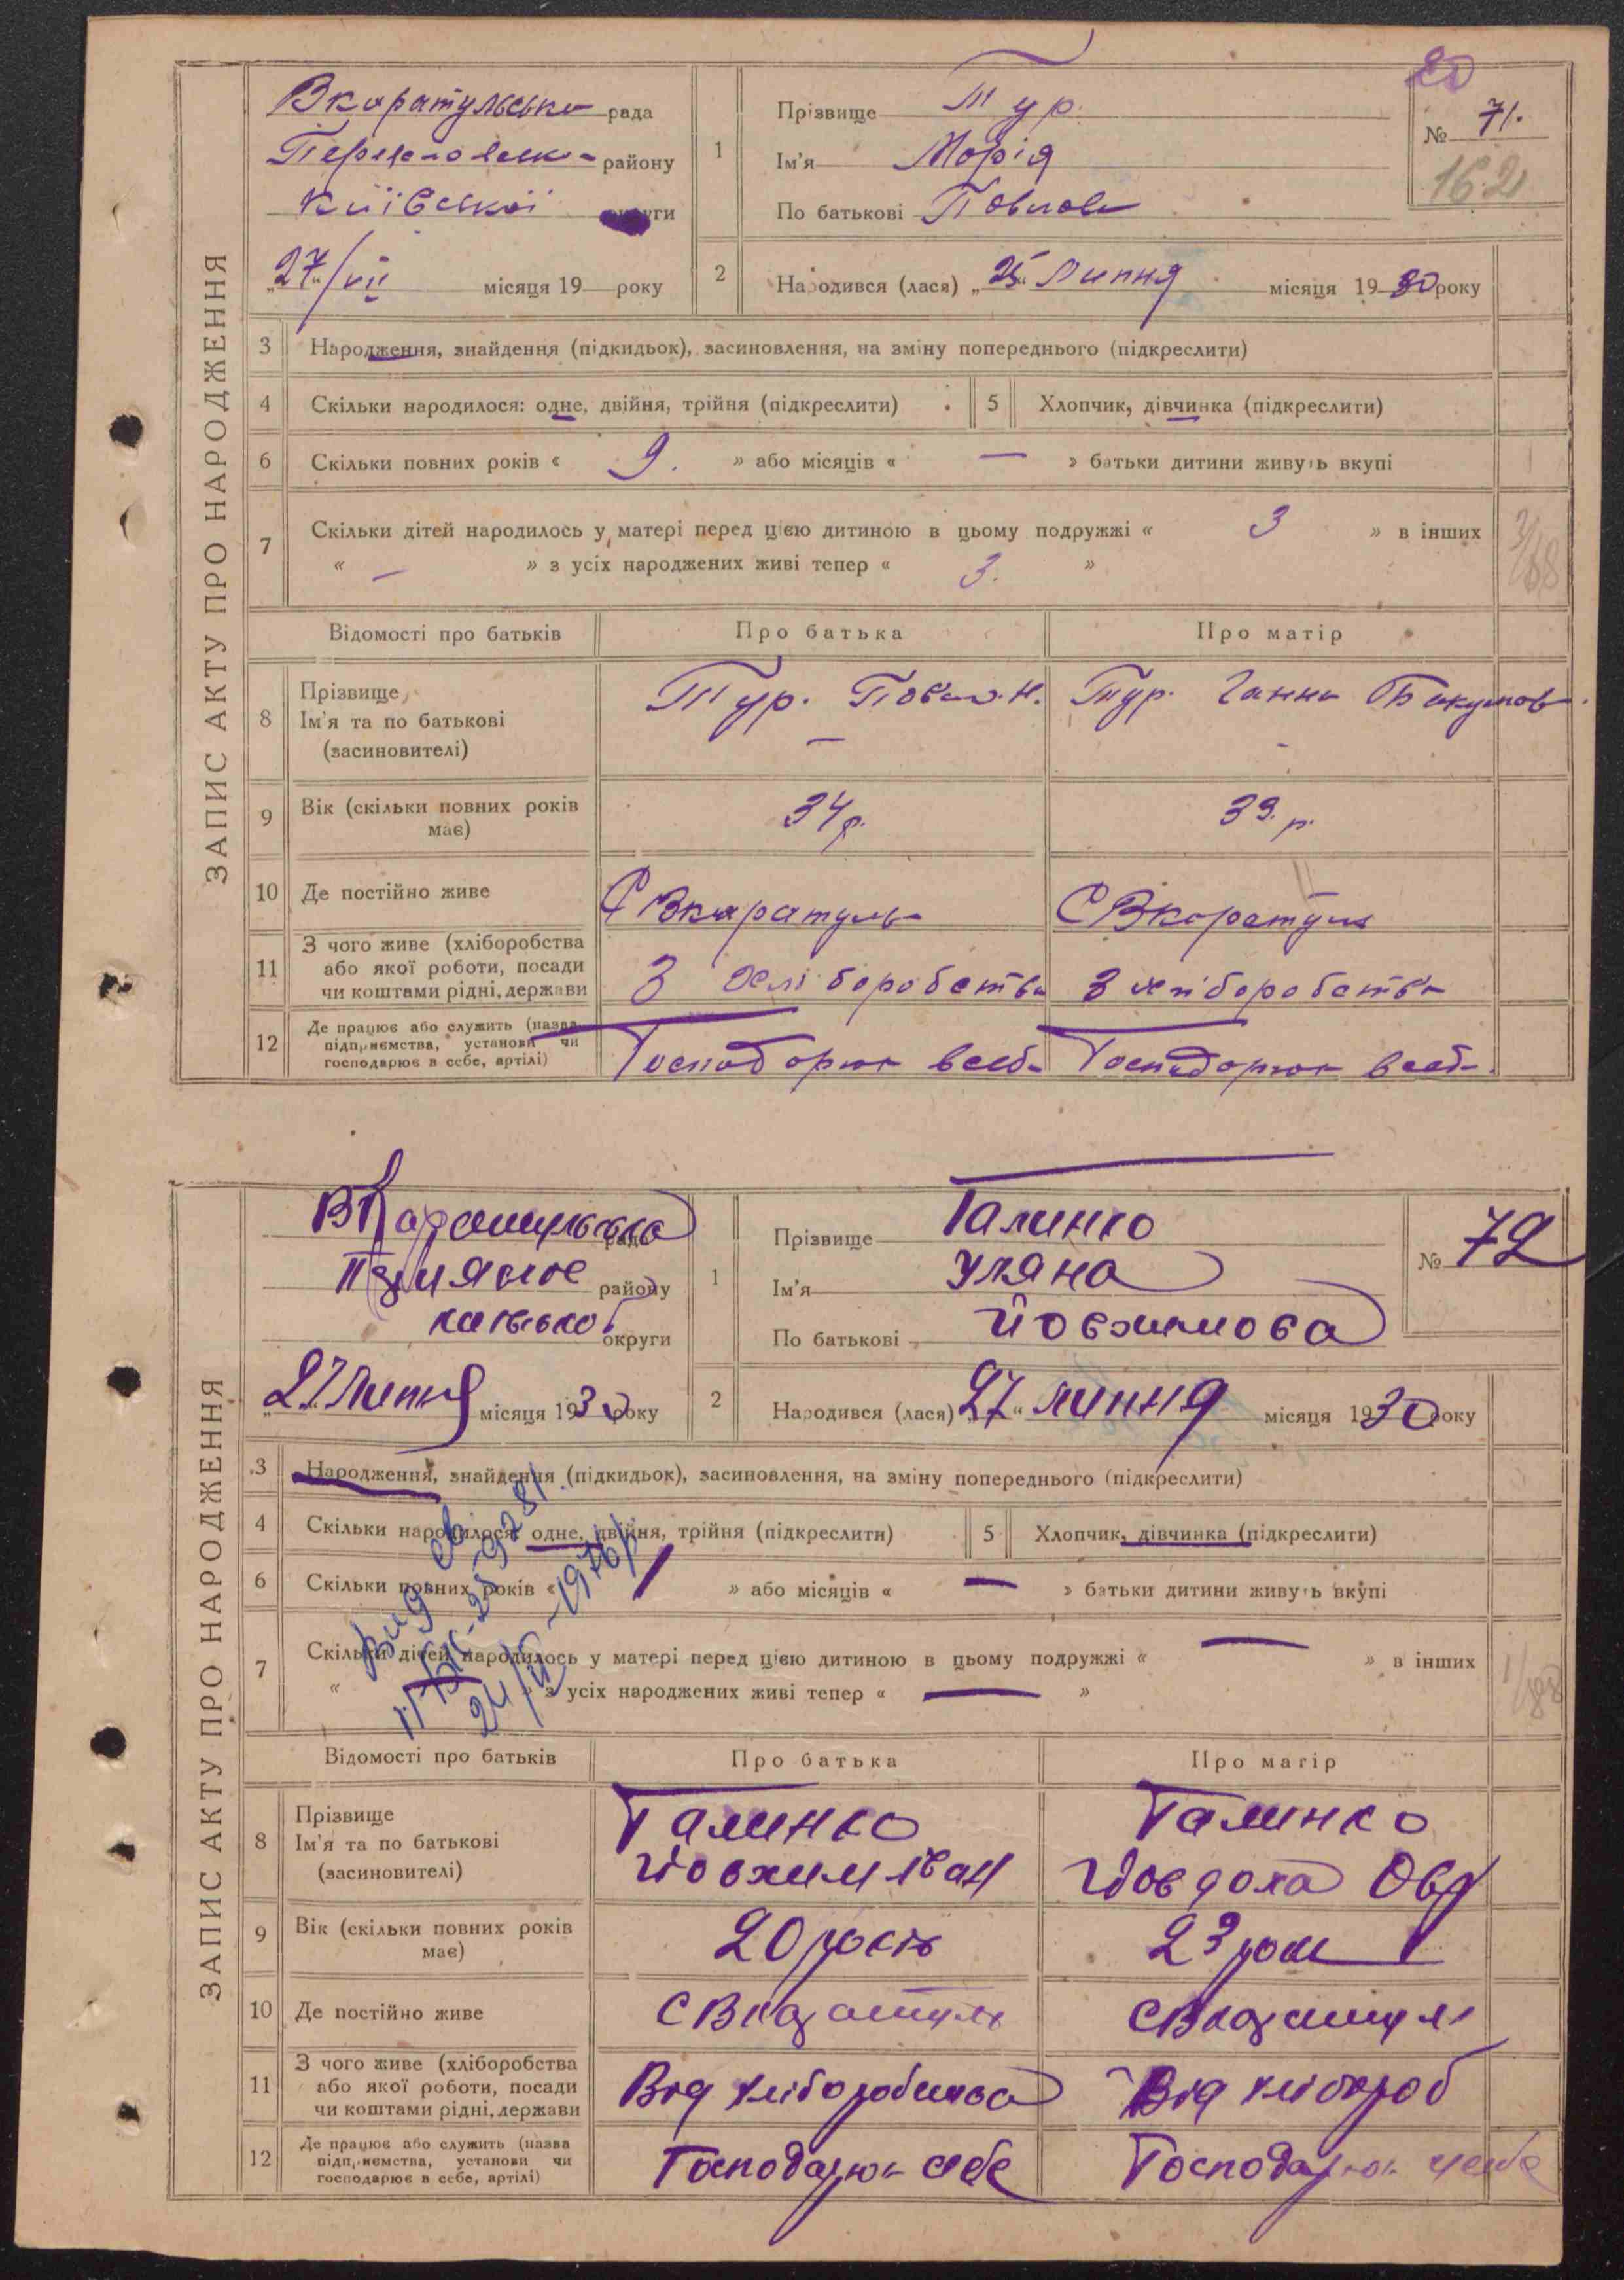 ЗАПИС АКТУ ПРО НАРОДЖЕННЯ
Вкаратульська рада
району
Київської округи
27/VII місяця 19 року
1 Прізвище Тур
Ім'я Морія
По батькові Повлов
20
№ 71.
162
2 Народився (лася) „25“ Липня місяця 1930 року
3 Народження, знайдення (підкидьок), засиновлення, на зміну попереднього (підкреслити)
4 Скільки народилося: одне, двійня, трійня (підкреслити)
5 Хлопчик, дівчинка (підкреслити)
6 Скільки повних років « 9. » або місяців « — » батьки дитини живуть вкупі
7 Скільки дітей народилось у матері перед цією дитиною в цьому подружжі « 3 » в інших
« — » з усіх народжених живі тепер « 3. »
Відомості про батьків Про батька Про матір
8 Прізвище,
Ім'я та по батькові
(засиновителі)
Тур. Повло Н.
Тур. Ганна
9 Вік (скільки повних років
має)
34 р.
39. р.
10 Де постійно живе
С Вкаратуль
С Вкоратуль
11 З чого живе (хліборобства
або якої роботи, посади
чи коштами рідні, держави
З хліборобства
З хліборобства
12 Де працює або служить (назва
підприємства, установи чи
господарює в себе, артілі)
Господорює всебе
Господорює всебе
ЗАПИС АКТУ ПРО НАРОДЖЕННЯ
ВКаратульська рада
району
округи
27 Липня місяця 1930 року
1 Прізвище Галинко
Ім'я Уляна
По батькові Йовхимова
№ 72
2 Народився (лася) „27“ липня місяця 1930 року
3 Народження, знайдення (підкидьок), засиновлення, на зміну попереднього (підкреслити)
4 Скільки народилося: одне, двійня, трійня (підкреслити)
5 Хлопчик, дівчинка (підкреслити)
6 Скільки повних років « 1 » або місяців « — » батьки дитини живуть вкупі
7 Скільки дітей народилось у матері перед цією дитиною в цьому подружжі « — » в інших
« — » з усіх народжених живі тепер « — »
Відомості про батьків Про батька Про матір
8 Прізвище
Ім'я та по батькові
(засиновителі)
Галинко
Йовхим Іван
Галинко
Йовдоха Овд
9 Вік (скільки повних років
має)
20 років
23 роки
10 Де постійно живе
С Вкаратуль
С Вкаратуль
11 З чого живе (хліборобства
або якої роботи, посади
чи коштами рідні, держави
Від хліборобства
Від хлібороб
12 Де працює або служить (назва
підприємства, установи чи
господарює в себе, артілі)
Господарює себе
Господарює